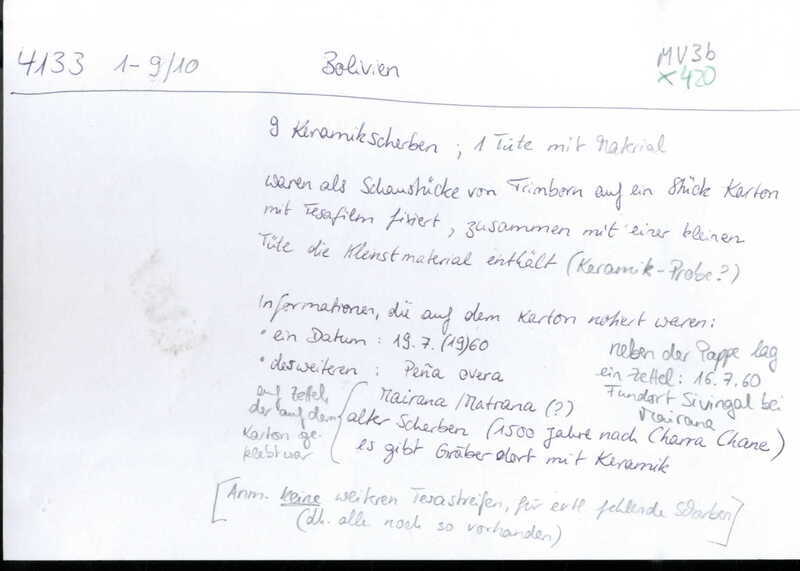 4133 1-9/10 Bolivien MV3b
x420
9 Keramikscherben ; 1 Tüte mit Material
waren als Schaustücke von Trimborn auf ein Stück Karton
mit Tesafilm fixiert, zusammen mit einer kleinen
Tüte die Kleinstmaterial enthält (Keramik-Probe?)
Informationen, die auf dem Karton notiert waren:
• ein Datum : 19.7.(19)60
• desweiteren : Peña overa
Mairana / Matrana (?)
alter Scherben (1500 Jahre nach Charra Chane)
es gibt Gräber dort mit Keramik
auf Zettel,
der auf dem
Karton ge-
klebt war
neben der Pappe lag
ein Zettel: 16.7.60
Fundort Sivingal bei
Mairana
[Anm. keine weiteren Tesastreifen, für evtl fehlende Scherben
(dh. alle noch so vorhanden)]